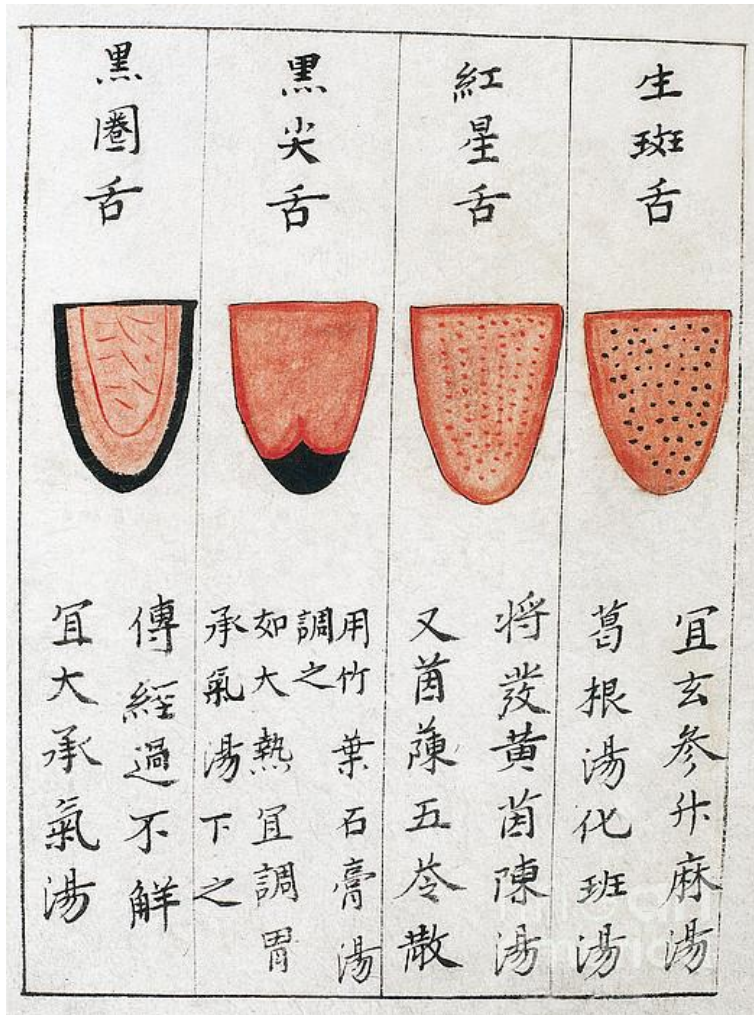 生斑舌
冝玄参升麻湯
葛根湯化班湯
紅星舌
将發黄茵陳湯
又茵陳五苓散
黒尖舌
用竹葉石膏湯
調之
如大熱冝調胃
承氣湯下之
黒圈舌
傳經過不解
冝大承氣湯